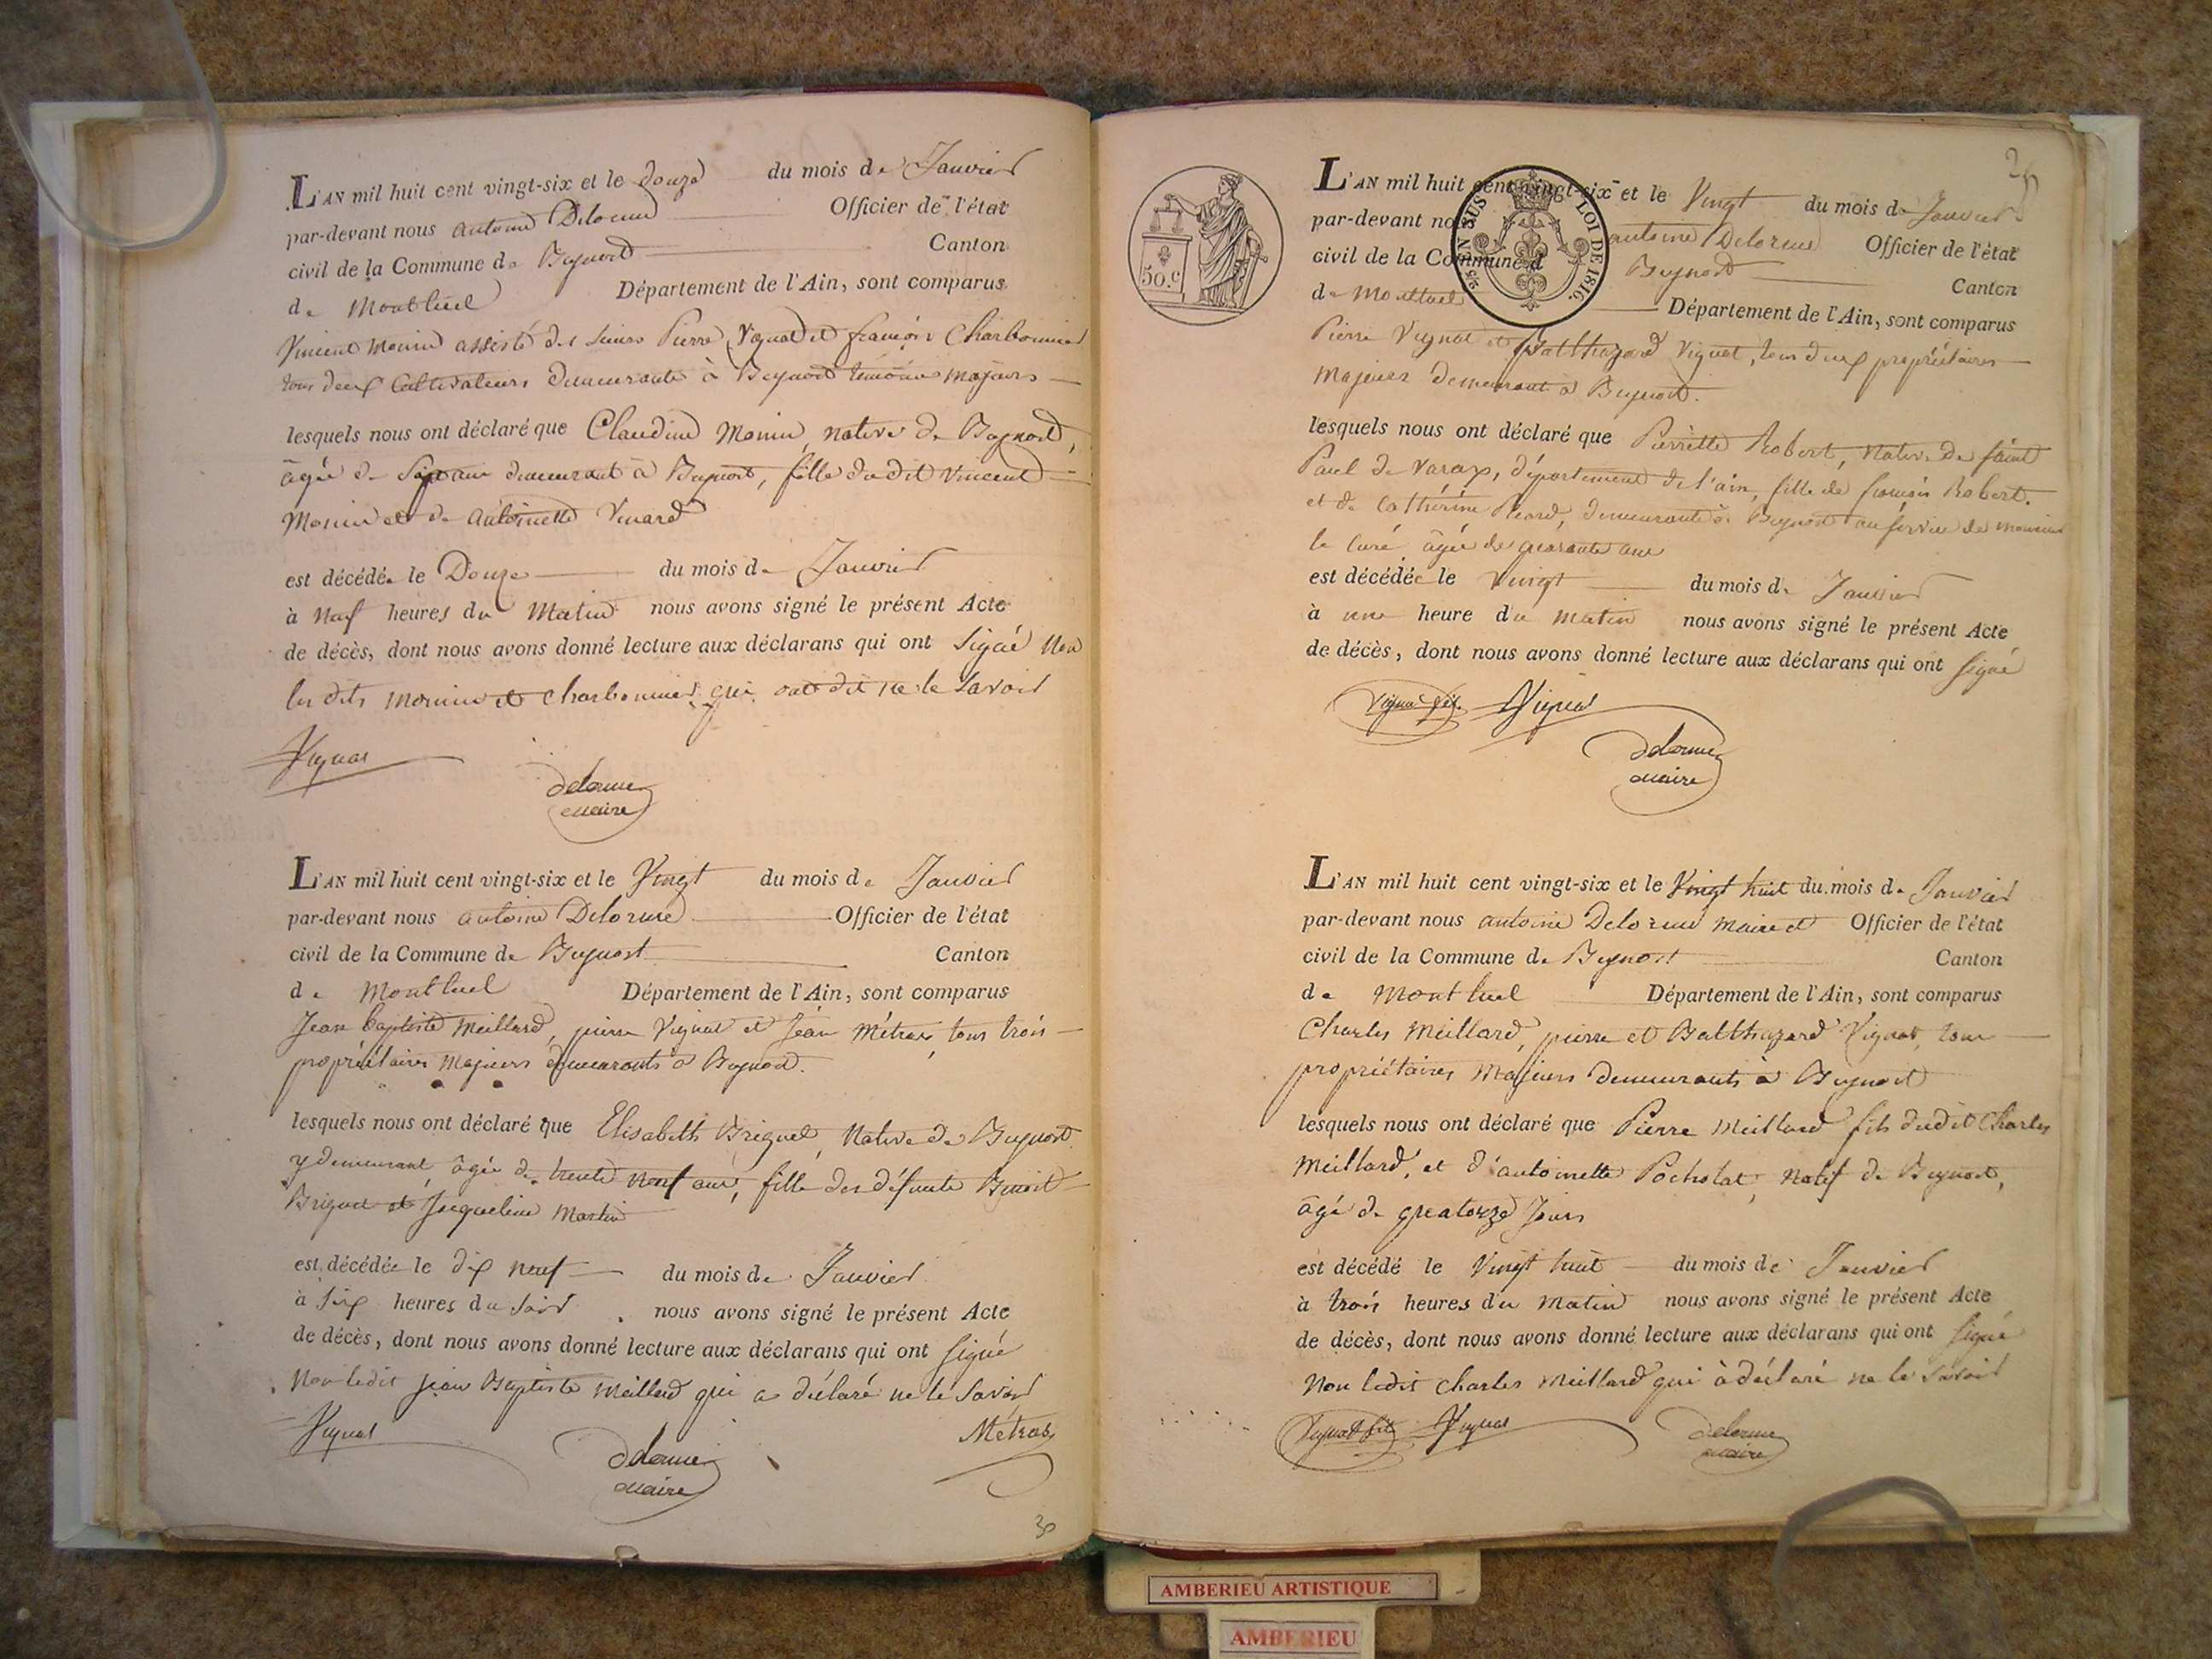 L'AN mil huit cent vingt-six et le douze du mois de Janvier
par-devant nous antoine Delorme Officier de l'état
civil de la Commune de Beynost Canton
de Montluel Département de l'Ain, sont comparus
Vincent Monin assisté des sieurs Pierre Vignat et françois Charbonnier
tous deux Cultivateurs demeurants à Beynost témoins majeurs
lesquels nous ont déclaré que Claudine Monin native de Beynost,
âgée de Sept ans demeurant à Beynost, fille du dit Vincent
Monin et de Antoinette
est décédée le Douze du mois de Janvier
à Neuf heures du Matin nous avons signé le présent Acte
de décès, dont nous avons donné lecture aux déclarans qui ont Signé Non
les dits Monin et Charbonnier qui ont dit ne le Savoir
Vignat
delorme
maire
L'AN mil huit cent vingt-six et le Vingt du mois de Janvier
par-devant nous antoine Delorme Officier de l'état
civil de la Commune de Beynost Canton
de Montluel Département de l'Ain, sont comparus
Jean baptiste Meillard, pierre Vignat et Jean Métras, tous trois
propriétaires Majeurs demeurants à Beynost.
lesquels nous ont déclaré que Elisabeth Briguet, Native de Beynost
y demeurant, âgée de trente Neuf ans, fille des défunts Benoit
Briguet et Jacqueline Martin
est décédée le dix neuf du mois de Janvier
à Six heures du Soir nous avons signé le présent Acte
de décès, dont nous avons donné lecture aux déclarans qui ont Signé
Non ledit Jean Baptiste Meillard qui a déclaré ne le Savoir
Vignat Métras
delorme
maire
30
L'AN mil huit cent vingt-six et le Vingt du mois de Janvier
par-devant nous antoine Delorme Officier de l'état
civil de la Commune d Beynost Canton
de Montluel Département de l'Ain, sont comparus
50.c
SUS LOI DE 1816.
Pierre Vignat et Balthazard Vignat, tous deux propriétaires
Majeurs demeurant à Beynost.
lesquels nous ont déclaré que Pierrette Robert, Native de saint
Paul de Varax, département de l'ain, fille de françois Robert.
et de Cathérine demeurante à Beynost au service de monsieur
le Curé âgée de quarante ans
est décédée le Vingt du mois de Janvier
à une heure du matin nous avons signé le présent Acte
de décès, dont nous avons donné lecture aux déclarans qui ont signé
Vignat fils Vignat
delorme
maire
L'AN mil huit cent vingt-six et le Vingt huit du mois de Janvier
par-devant nous antoine Delorme Maire et Officier de l'état
civil de la Commune de Beynost Canton
de Montluel Département de l'Ain, sont comparus
Charles Meillard, pierre et Balthazard Vignat, tous
propriétaires Majeurs demeurants à Beynost
lesquels nous ont déclaré que Pierre Meillard fils dudit Charles
Meillard, et d'antoinette Pocholat, Natif de Beynost,
âgé de quatorze Jours
est décédé le Vingt huit du mois de Janvier
à trois heures du Matin nous avons signé le présent Acte
de décès, dont nous avons donné lecture aux déclarans qui ont signé
Non ledit Charles Meillard qui à déclaré ne le Savoir
Vignat fils Vignat delorme
maire
AMBERIEU ARTISTIQUE
AMBERIEU